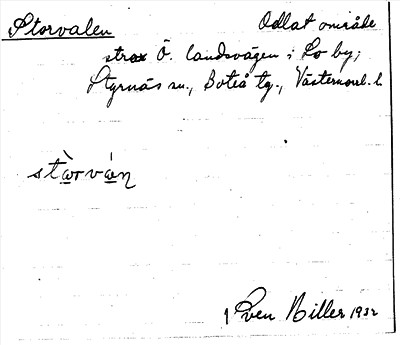 Storvalen Odlat område
strax Ö. landsvägen i Lo by;
Styrnäs sn., Boteå tg., Västernorrl. l.
stὼrvάn̥
Sven Hiller 1932